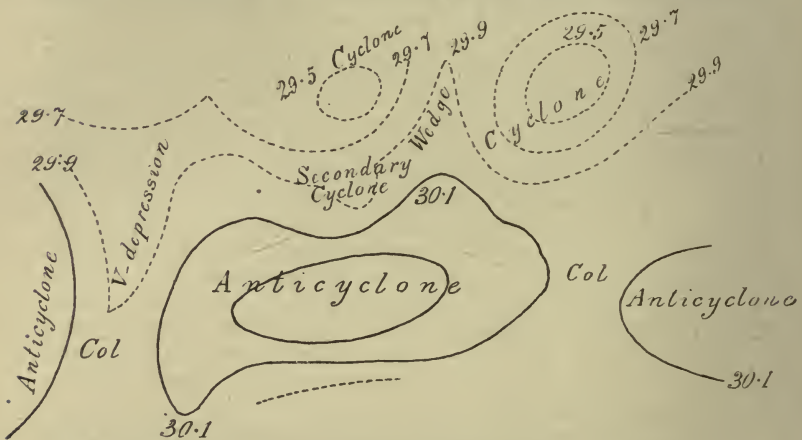 29.5 Cyclone 29.7
29.9
29.5
29.7
Cyclone
29.9
29.7
29.9
V-depression
Secondary
Cyclone
Wedge
30.1
Anticyclone
Col
Anticyclone
Col
Anticyclone
30.1
30.1